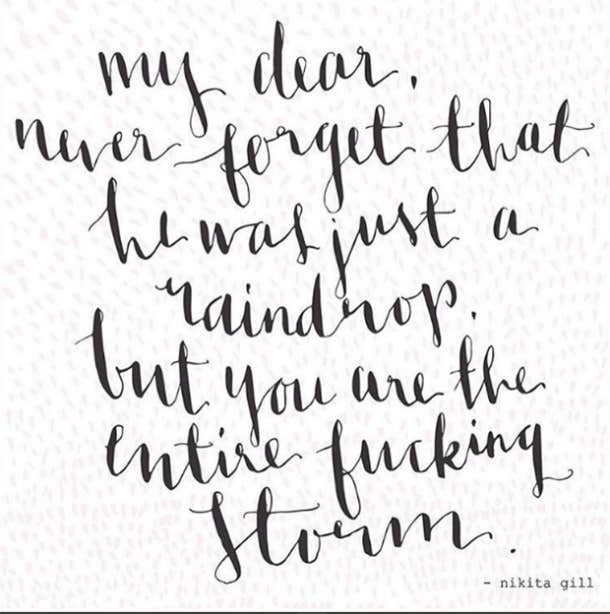 my dear,
never forget that
he was just a
raindrop,
but you are the
entire fucking
storm.
- nikita gill